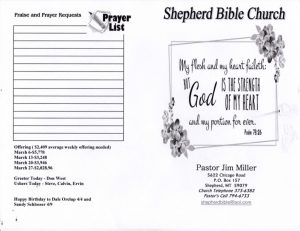 Praise and Prayer Requests
Prayer
List
Offering ( $2,409 average weekly offering needed)
March 6-$5,770
March 13-$3,248
March 20-$3,946
March 27-$2,028.96
Greeter Today - Don West
Ushers Today - Steve, Calvin, Ervin
Happy Birthday to Dale Orulup 4/4 and
Sandy Schloner 4/9
Shepherd Bible Church
My flesh and my heart faileth:
BUT God IS THE STRENGTH
OF MY HEART
and my portion for ever.
Psalm 73:26
Pastor Jim Miller
5622 Chicago Road
P.O. Box 157
Shepherd, MT 59079
Church Telephone 373-6382
Pastor's Cell 794-6733